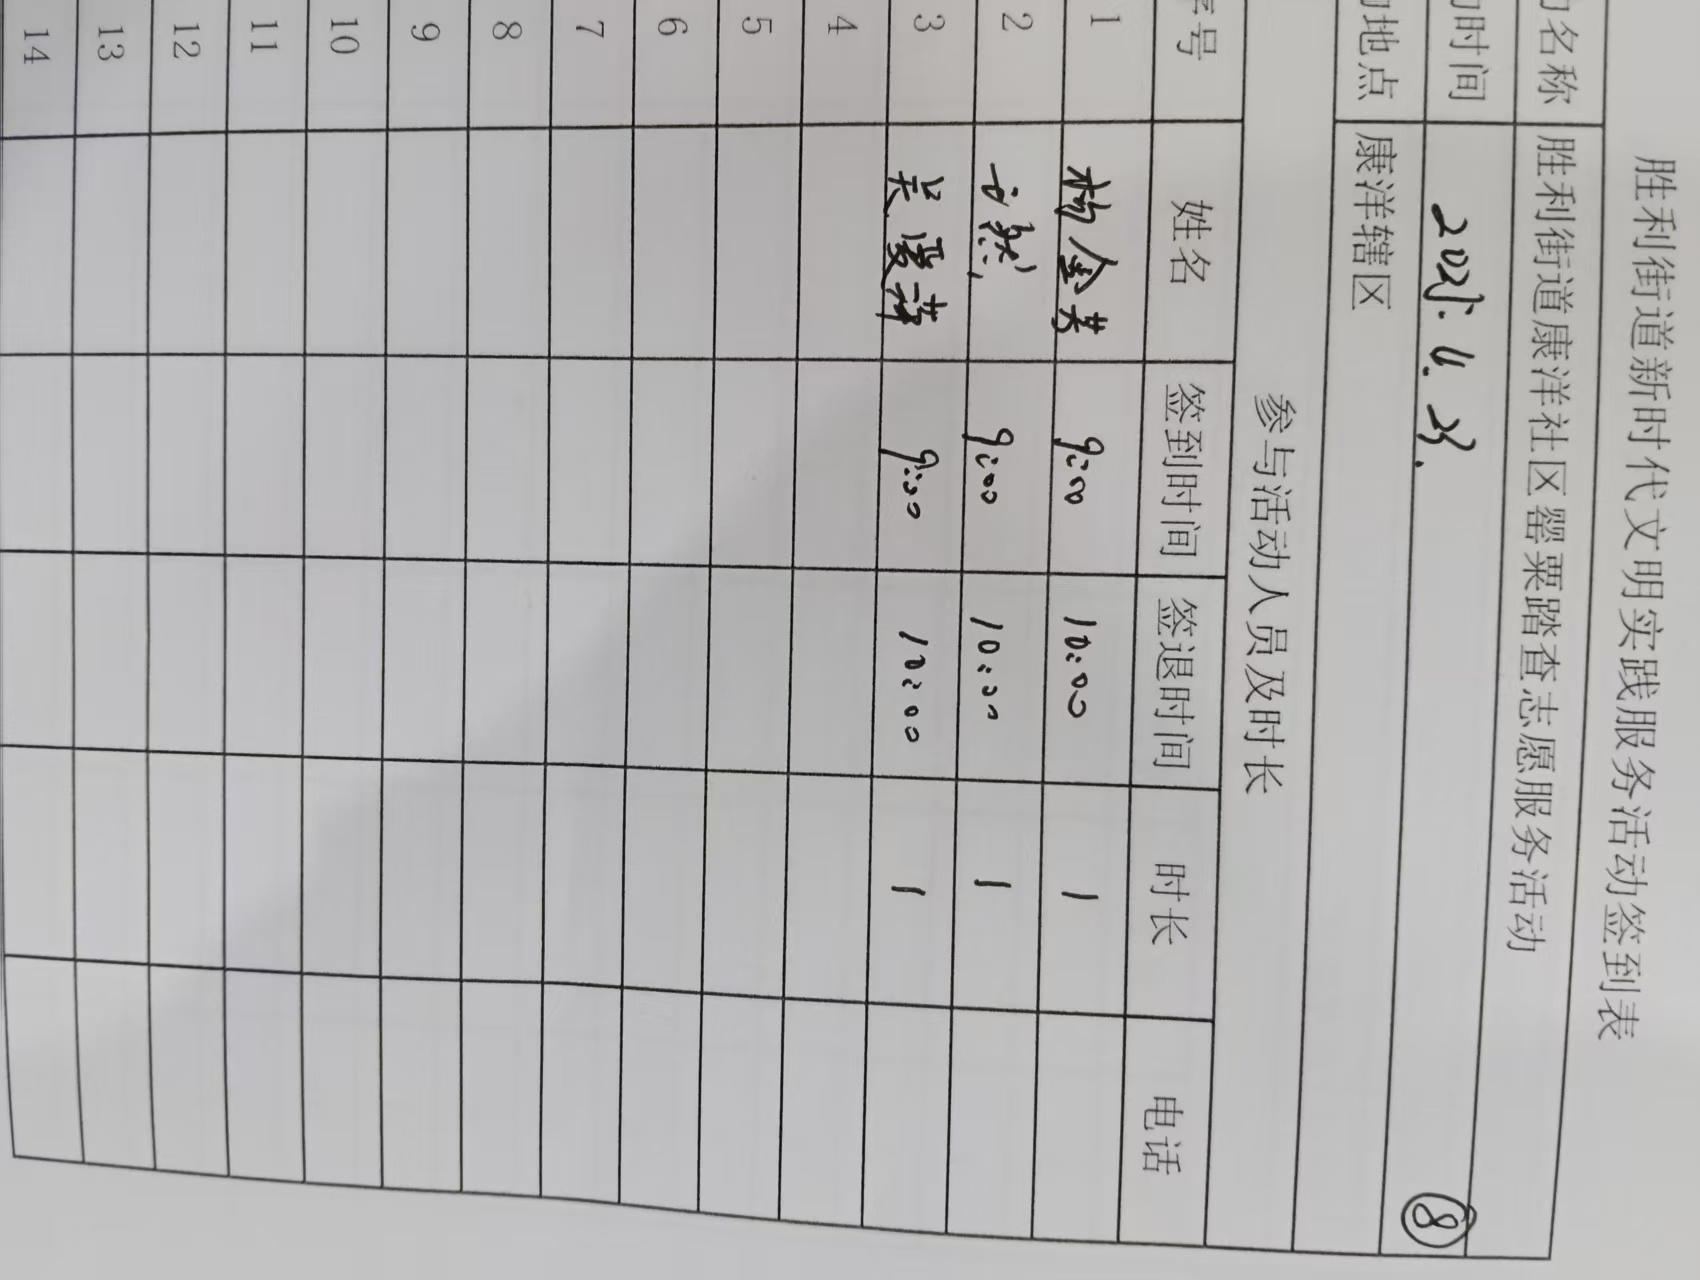 胜利街道新时代文明实践服务活动签到表
动名称 胜利街道康洋社区罂粟踏查志愿服务活动
动时间 2025.11.23.
动地点 康洋辖区
⑧
参与活动人员及时长
序号 姓名 签到时间 签退时间 时长 电话
1 杨金英 9:00 10:00 1
2 9:00 10:00 1
3 吴爱萍 9:00 10:00 1
4
5
6
7
8
9
10
11
12
13
14